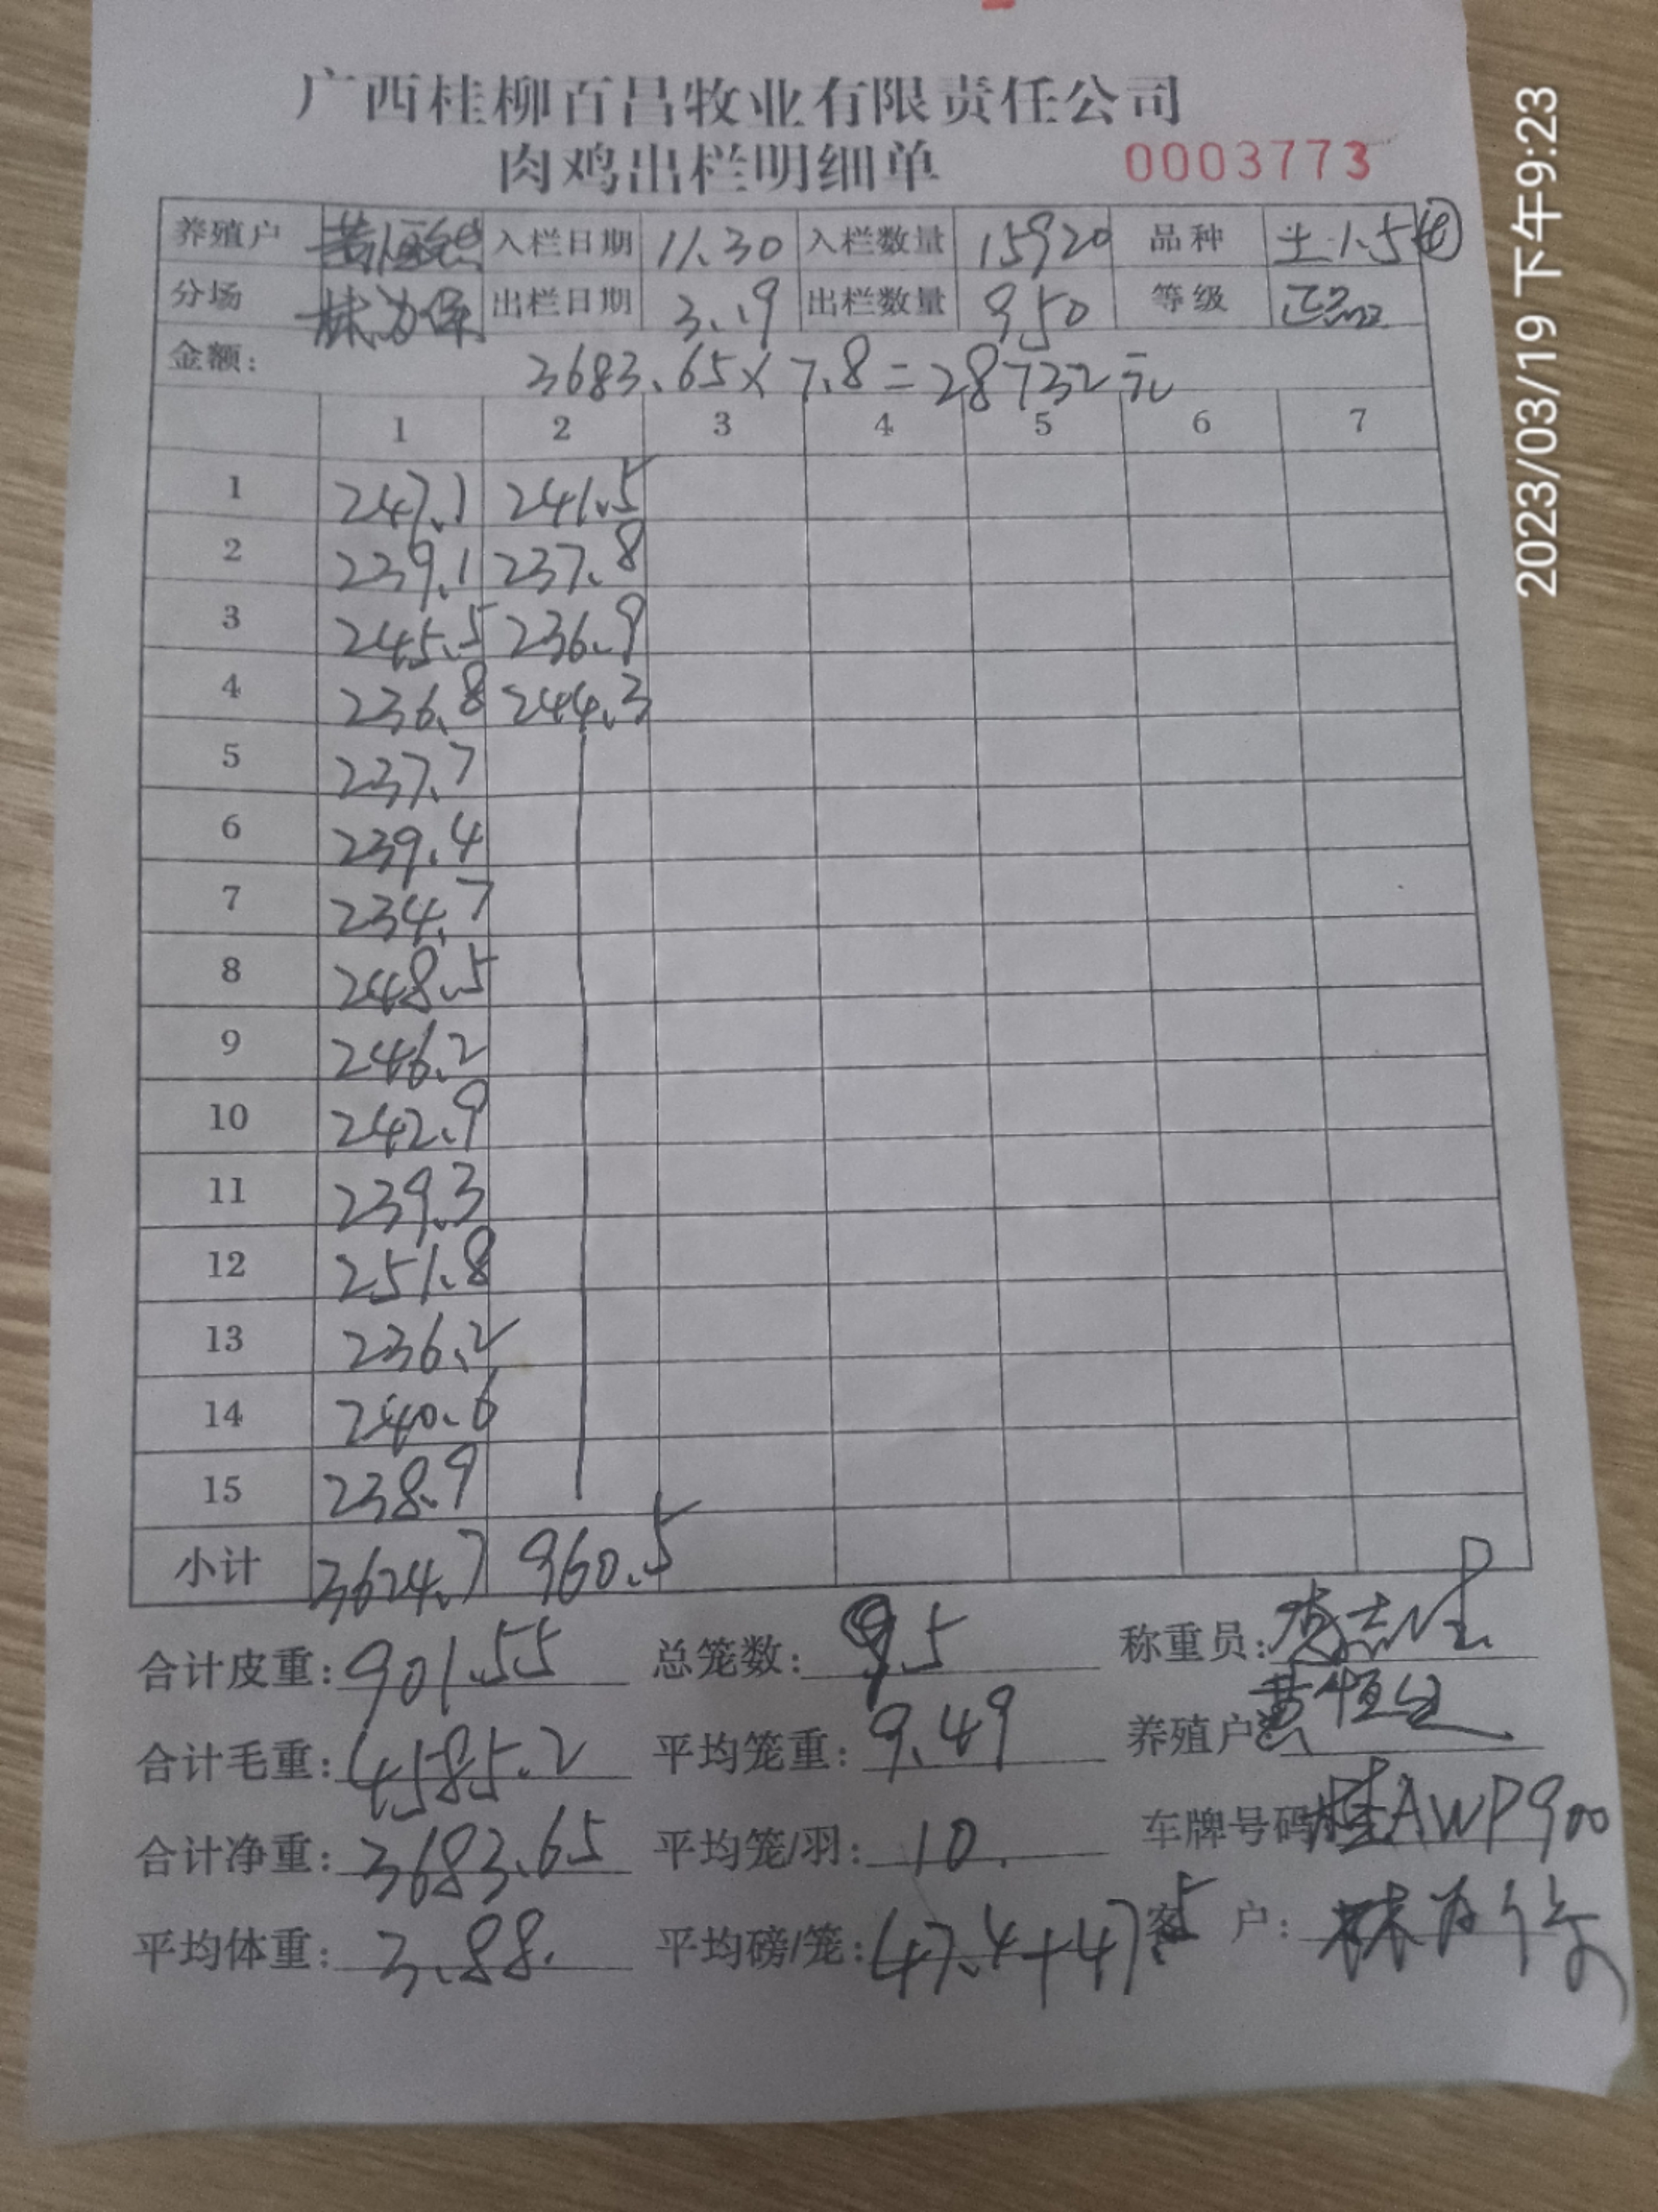 广西桂柳百昌牧业有限责任公司
肉鸡出栏明细单 0003773
养殖户 入栏日期 11.30 入栏数量 15920 品种 土1.5
分场 出栏日期 3.19 出栏数量 950 等级 正品
金额: 3683.65×7.8=28732元
1 2 3 4 5 6 7
1 247.1 241.5
2 239.1 237.8
3 245.5 236.9
4 236.8 244.3
5 237.7
6 239.4
7 234.7
8 248.5
9 246.2
10 242.9
11 239.3
12 251.8
13 236.2
14 240.6
15 238.9
小计 3624.7 960.5
合计皮重: 901.55 总笼数: 95 称重员:
合计毛重: 4585.2 平均笼重: 9.49 养殖户 黄恒
合计净重: 3683.65 平均笼/羽: 10. 车牌号码 桂AWP900
平均体重: 3.88. 平均磅/笼: 47.4+47 5 客 户: 林为
2023/03/19 下午9:23